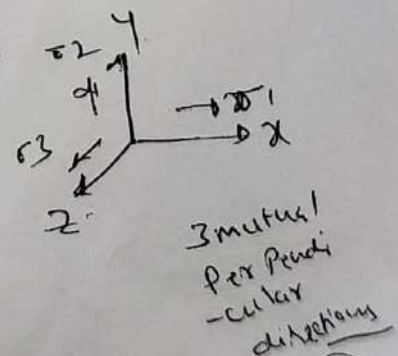 Y
σ2
σ1
X
σ3
Z
3 mutual
Perpendi
-cular
directions